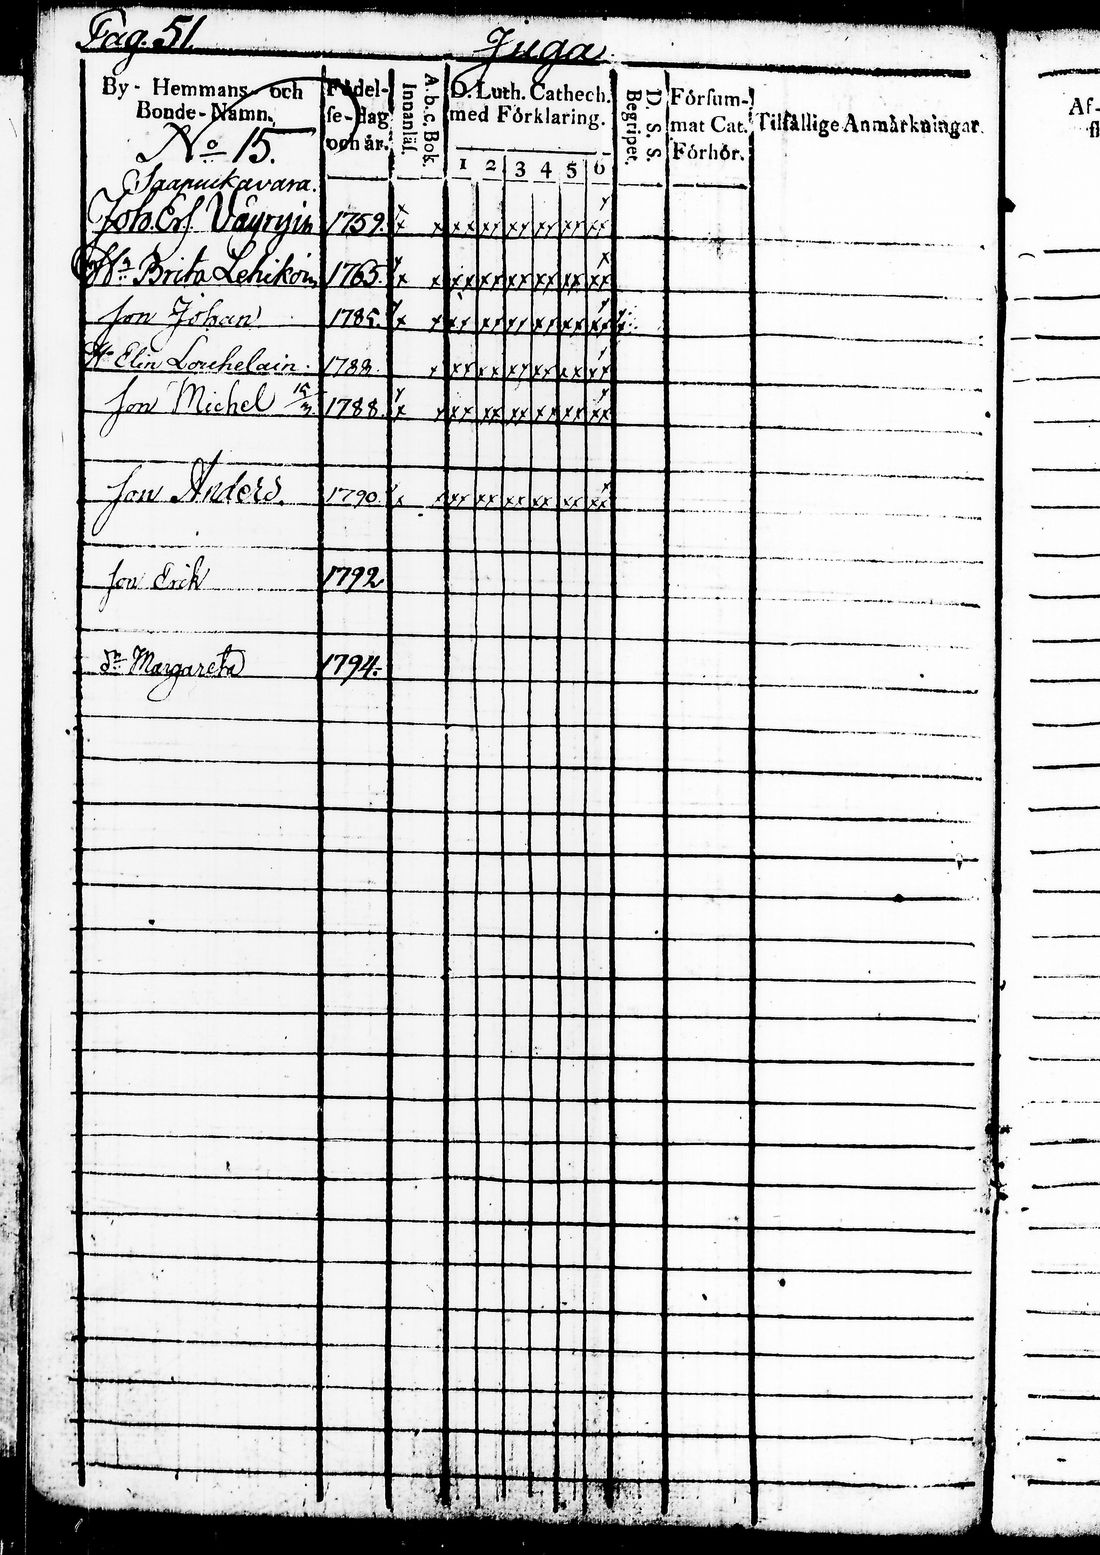 Pag. 51.
Juga
By - Hemmans - och
Bonde - Namn.
Födel-
se-dag
och år.
Innanläs.
A.b.c. Bok.
D. Luth. Cathech.
med Förklaring.
1 2 3 4 5 6
Begripet.
D. S. S.
Försum-
mat Cat.
Förhör.
Tilfällige Anmärkningar
Af-
No 15.
Saapuckavara.
Joh. Ers. Väyryin 1759.
Brita Lehikoin 1765.
Son Johan 1785.
Hu Elin Louhelain. 1788.
Son Michel 15/3 1788.
Son Anders. 1790.
Son Erik 1792
Dr Margareta 1794.